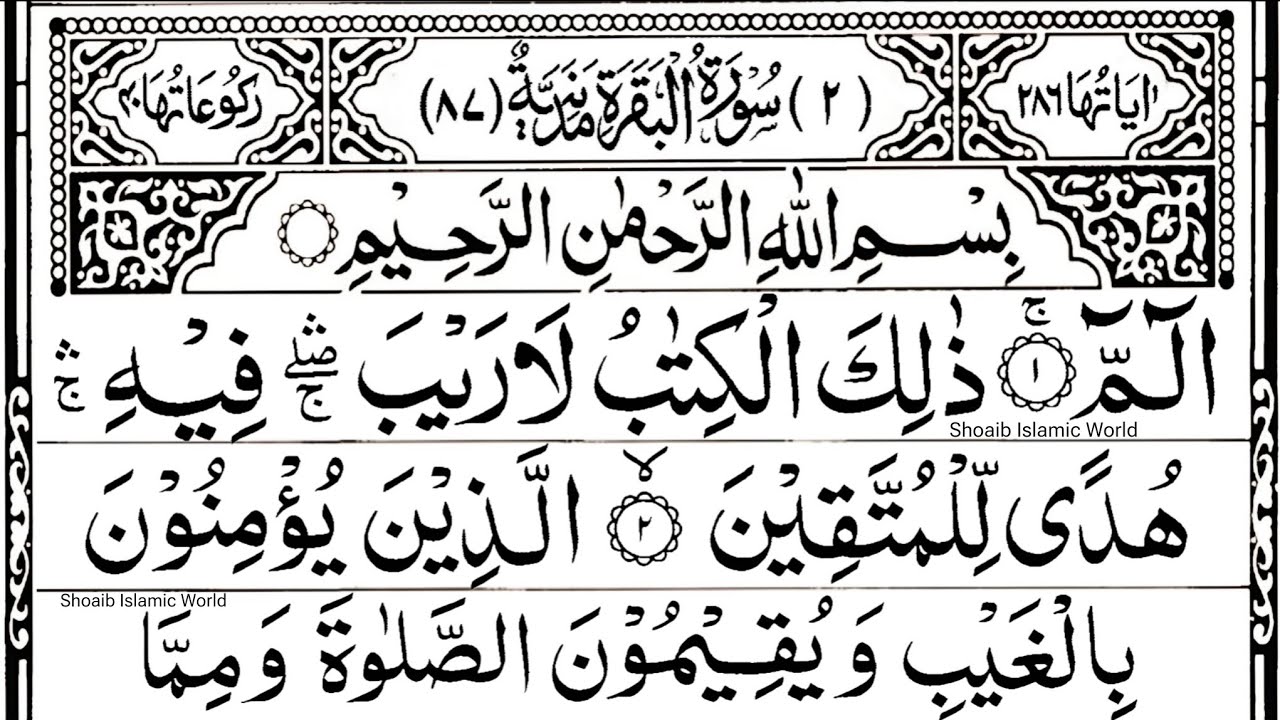 اٰيَاتُهَا ٢٨٦ (٢) سُوْرَةُ الْبَقَرَةِ مَدَنِيَّةٌ (٨٧) رُكُوْعَاتُهَا ٤٠
بِسْمِ اللّٰهِ الرَّحْمٰنِ الرَّحِيْمِ
الٓمّٓ ۚ ١ ذٰلِكَ الْكِتٰبُ لَا رَيْبَ ۛۖۚ فِيْهِ ۛۚ
Shoaib Islamic World
هُدًى لِّلْمُتَّقِيْنَ ۙ ٢ الَّذِيْنَ يُؤْمِنُوْنَ
Shoaib Islamic World
بِالْغَيْبِ وَيُقِيْمُوْنَ الصَّلٰوةَ وَمِمَّا